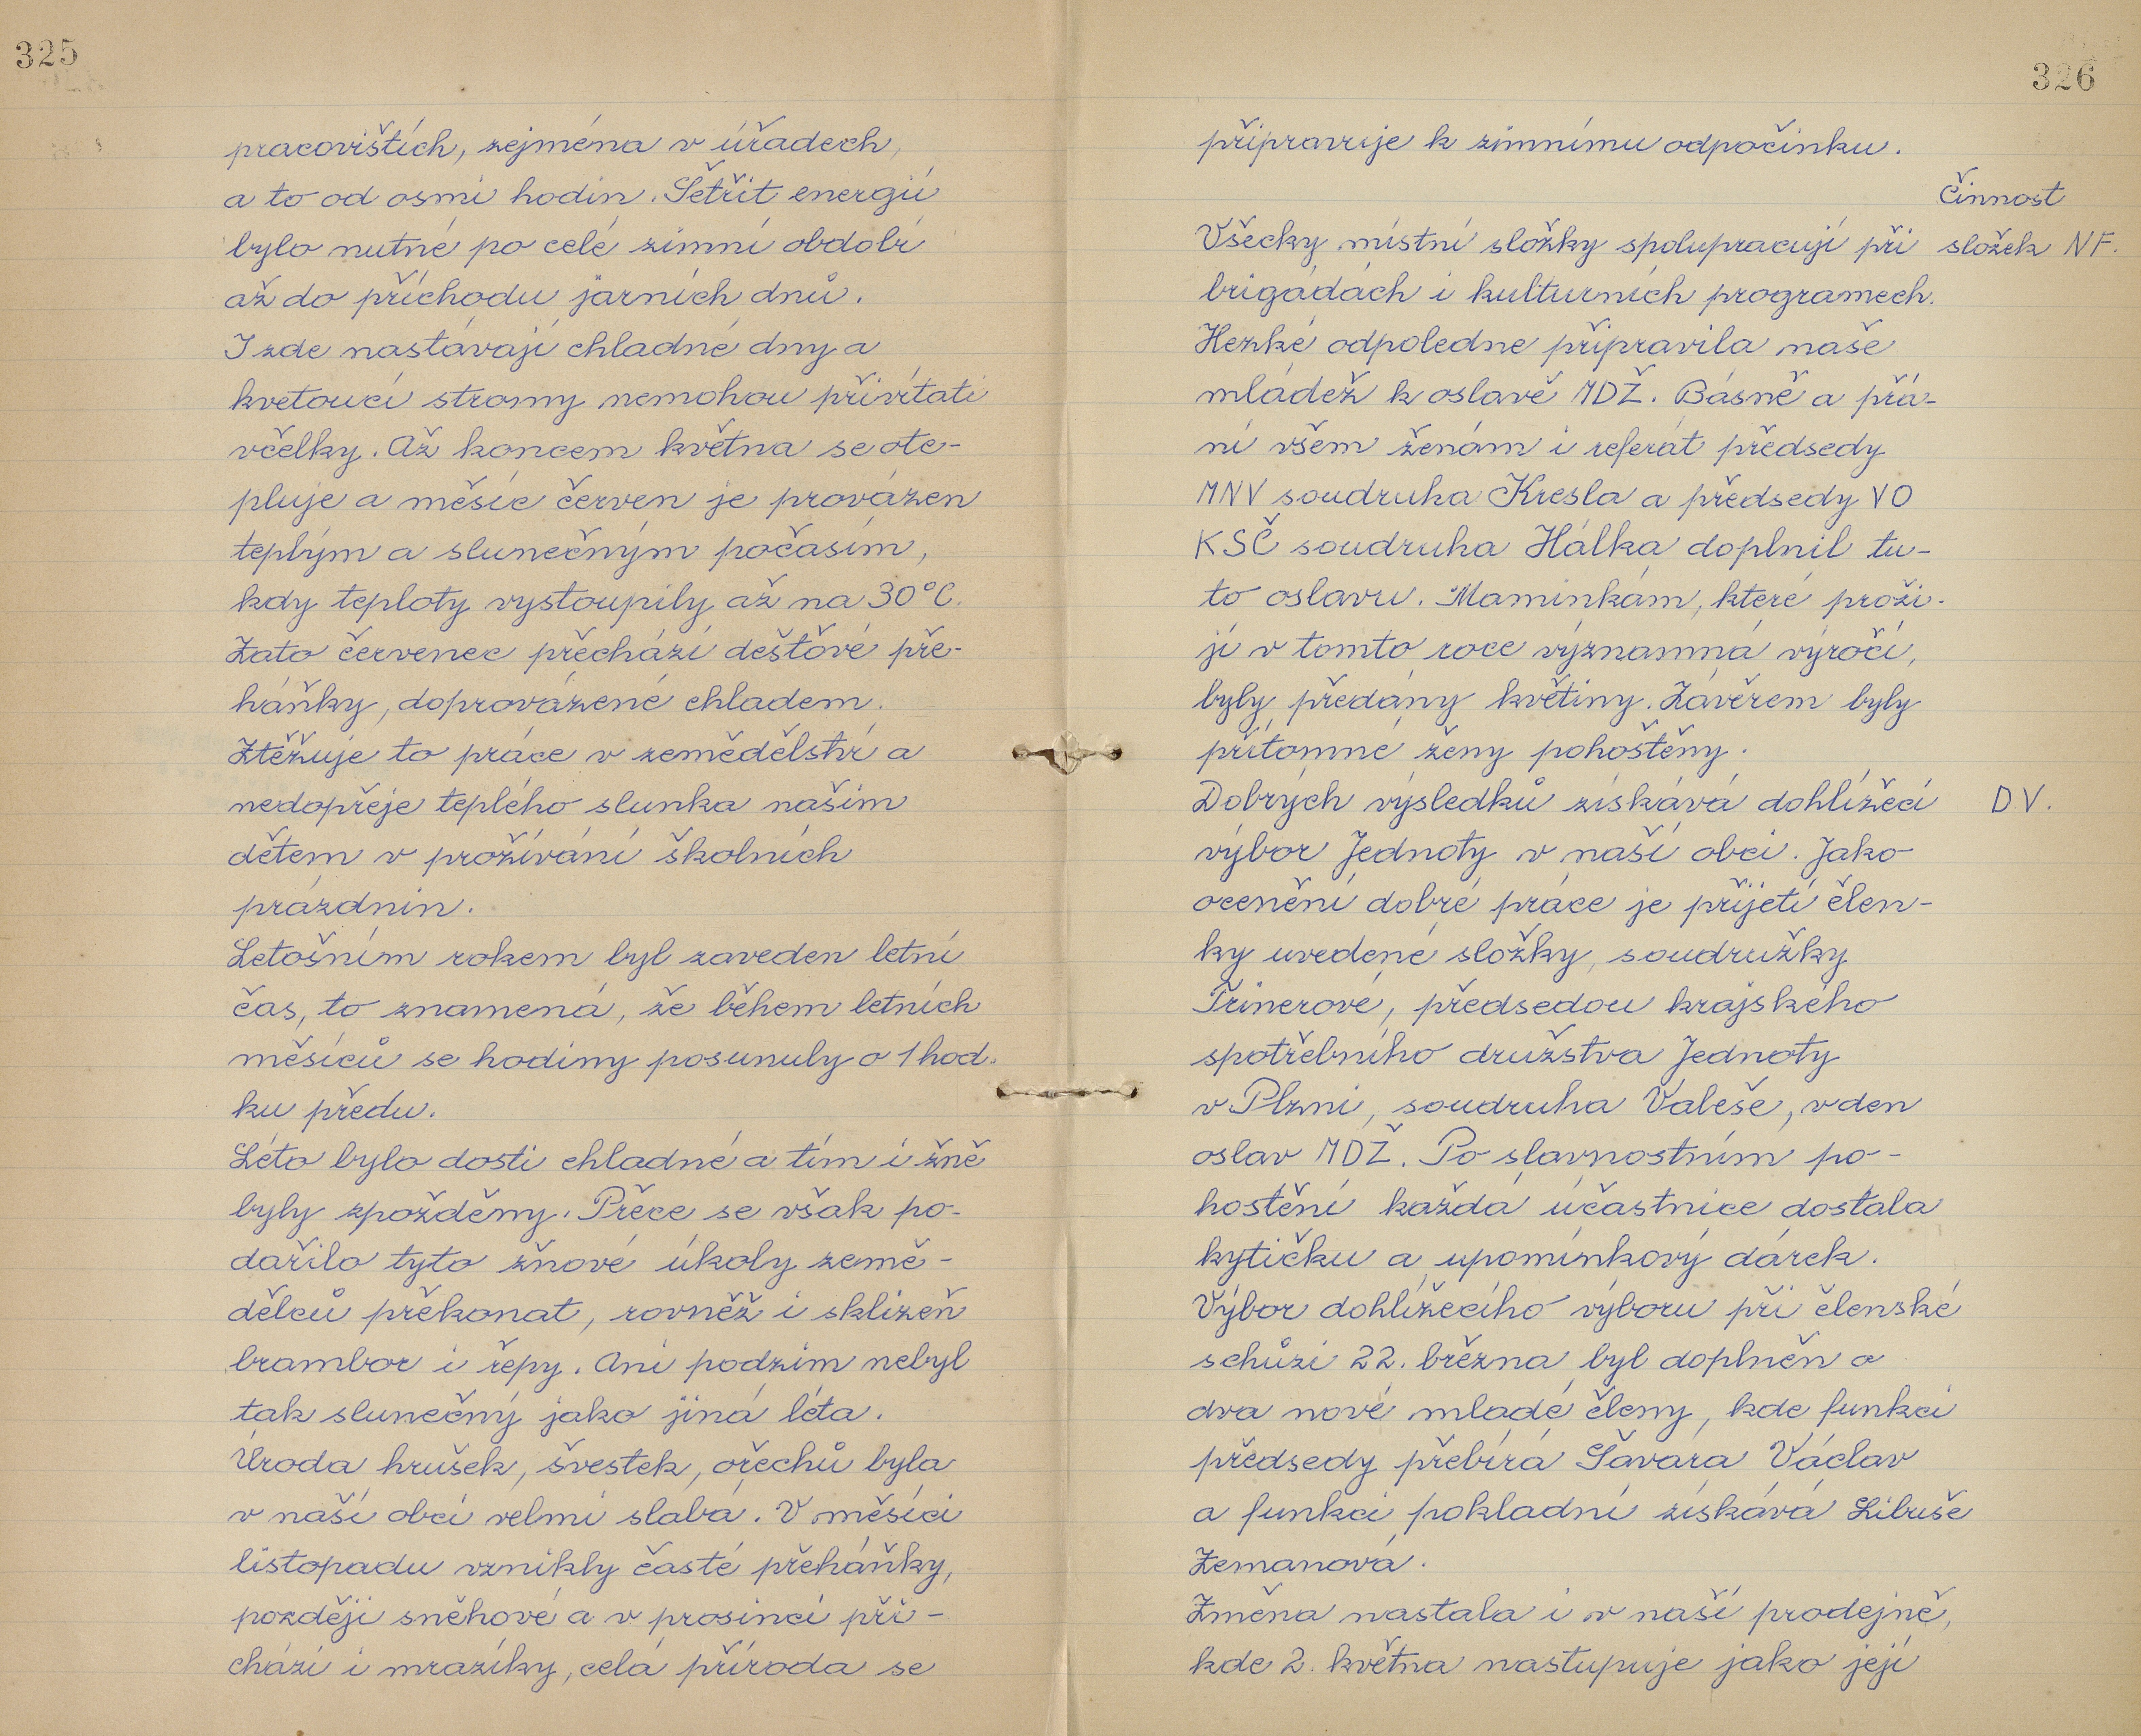 325
pracovištích, zejména v úřadech,
a to od osmi hodin. Šetřit energií
bylo nutné po celé zimní období
až do příchodu jarních dnů.
I zde nastávají chladné dny a
kvetoucí stromy nemohou přivítati
včelky. Až koncem května se ote-
pluje a měsíc červen je provázen
teplým a slunečným počasím,
kdy teploty vystoupily až na 30°C.
Zato červenec přechází dešťové pře-
háňky, doprovázené chladem.
Ztěžuje to práce v zemědělství a
nedopřeje teplého slunka našim
dětem v prožívání školních
prázdnin.
Letošním rokem byl zaveden letní
čas, to znamená, že během letních
měsíců se hodiny posunuly o 1 hod.
ku předu.
Léto bylo dosti chladné a tím i žně
byly zpožděny. Přece se však po-
dařilo tyto žňové úkoly země-
dělců překonat, rovněž i sklizeň
brambor i řepy. Ani podzim nebyl
tak slunečný jako jiná léta.
Úroda hrušek, švestek, ořechů byla
v naší obci velmi slabá. V měsíci
listopadu vznikly časté přeháňky,
později sněhové a v prosinci při-
chází i mrazíky, celá příroda se
326
připravuje k zimnímu odpočinku.
Činnost
Všecky místní složky spolupracují při složek NF.
brigádách i kulturních programech.
Hezké odpoledne připravila naše
mládež k oslavě MDŽ. Básně a přá-
ní všem ženám i referát předsedy
MNV soudruha Kresla a předsedy VO
KSČ soudruha Hálka doplnil tu-
to oslavu. Maminkám, které proži-
jí v tomto roce významná výročí,
byly předány květiny. Závěrem byly
přítomné ženy pohoštěny.
Dobrých výsledků získává dohlížecí D.V.
výbor Jednoty v naší obci. Jako
ocenění dobré práce je přijetí člen-
ky uvedené složky, soudružky
Trinerové, předsedou krajského
spotřebního družstva Jednoty
v Plzni, soudruha Valeše, v den
oslav MDŽ. Po slavnostním po-
hostění každá účastnice dostala
kytičku a upomínkový dárek.
Výbor dohlížecího výboru při členské
schůzi 22. března byl doplněn o
dva nové mladé členy, kde funkci
předsedy přebírá Šavára Václav
a funkci pokladní získává Libuše
Zemanová.
Změna nastala i v naší prodejně,
kde 2. května nastupuje jako její